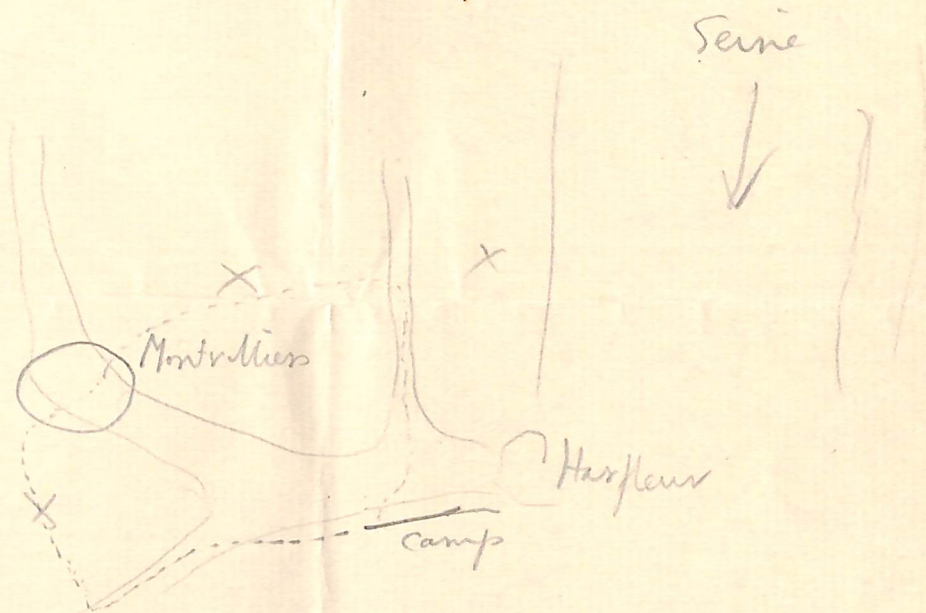 Seine
Montvilliers
Harfleur
camp